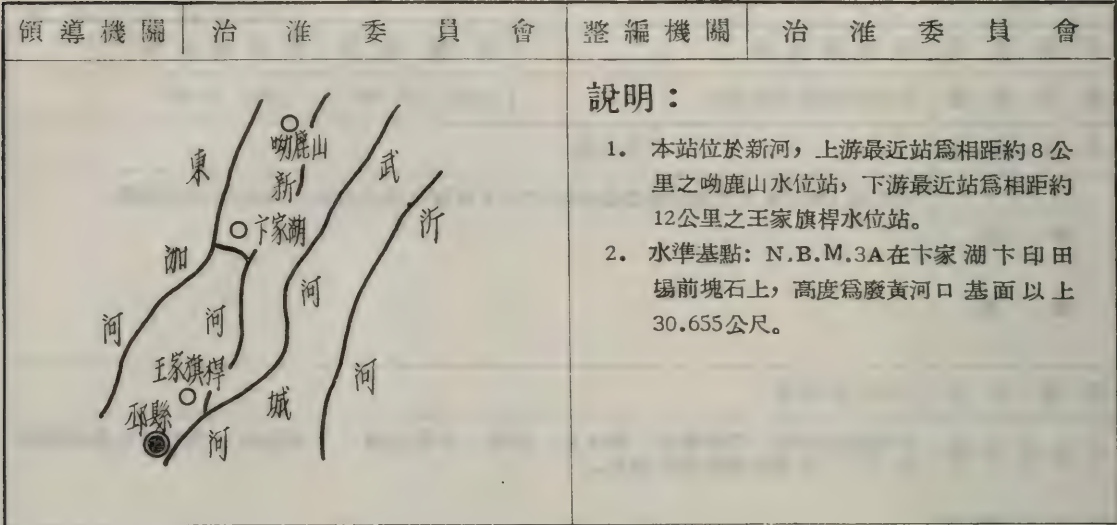 領導機關 治淮委員會 整編機關 治淮委員會
呦鹿山
東
新
武
沂
卞家湖
泇
河
河
河
王家旗桿
河
城
邳縣
河
說明：
1. 本站位於新河，上游最近站爲相距約8公
里之呦鹿山水位站，下游最近站爲相距約
12公里之王家旗桿水位站。
2. 水準基點: N.B.M.3A在卞家湖卞印田
場前塊石上，高度爲廢黃河口基面以上
30.655公尺。